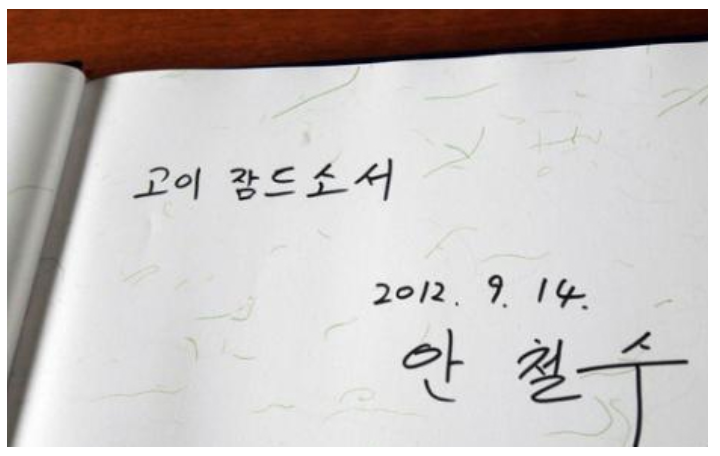 고이 잠드소서
2012. 9. 14.
안 철수